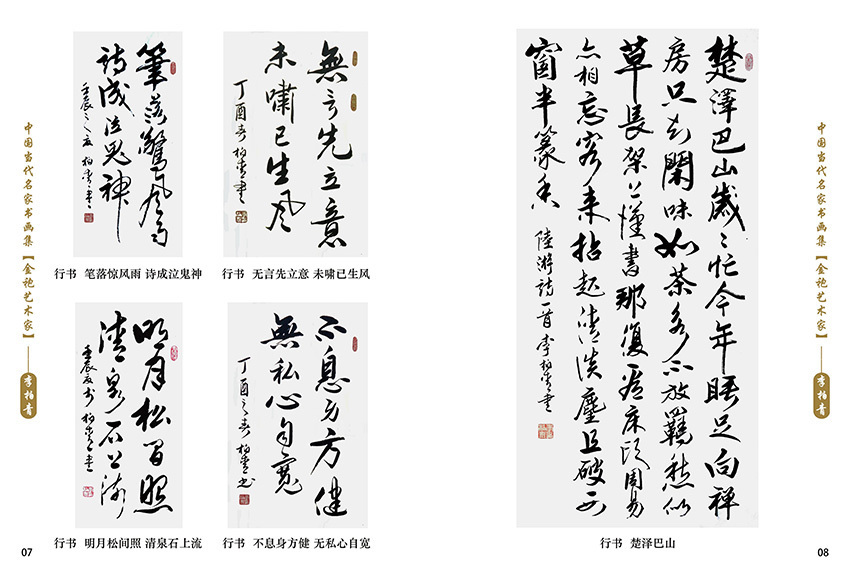 中国当代名家书画集【金袍艺术家】
李柏青
筆落驚風雨
詩成泣鬼神
壬辰之夏 柏青書
行书 笔落惊风雨 诗成泣鬼神
無言先立意
未嘯已生風
丁酉春 柏青書
行书 无言先立意 未啸已生风
明月松間照
清泉石上流
壬辰夏 柏青書
行书 明月松间照 清泉石上流
不息身方健
無私心自寬
丁酉之春 柏青书
行书 不息身方健 无私心自宽
07
楚澤巴山歲々忙今年睡足向禪
房只知閑味如茶永不放羈愁似
草長架上漢書那復看床頭周易
亦相忘客来拈起清談麈且破西
窗半篆香
陸游詩一首 李柏青書
行书 楚泽巴山
中国当代名家书画集【金袍艺术家】
李柏青
08